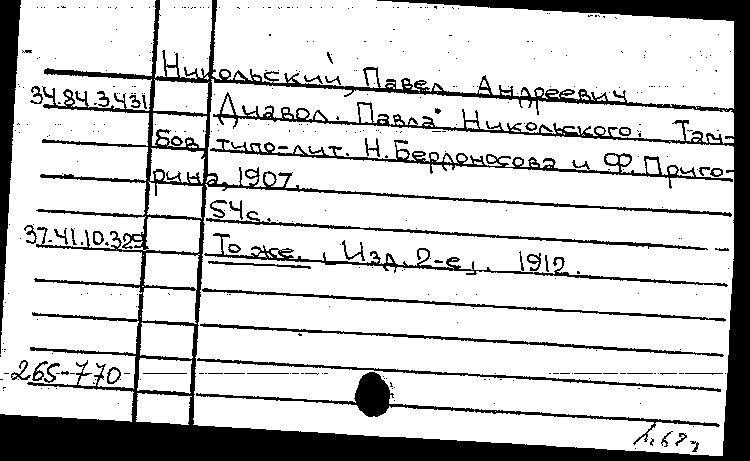 Никольский, Павел Андреевич
34.84.3.431 Диавол. Павла Никольского. Там-
бов, типо-лит. Н. Бердоносова и Ф. Приго-
рина, 1907.
54с.
37.41.10.329 То же., Изд. 2-е,. 1912.
265-770